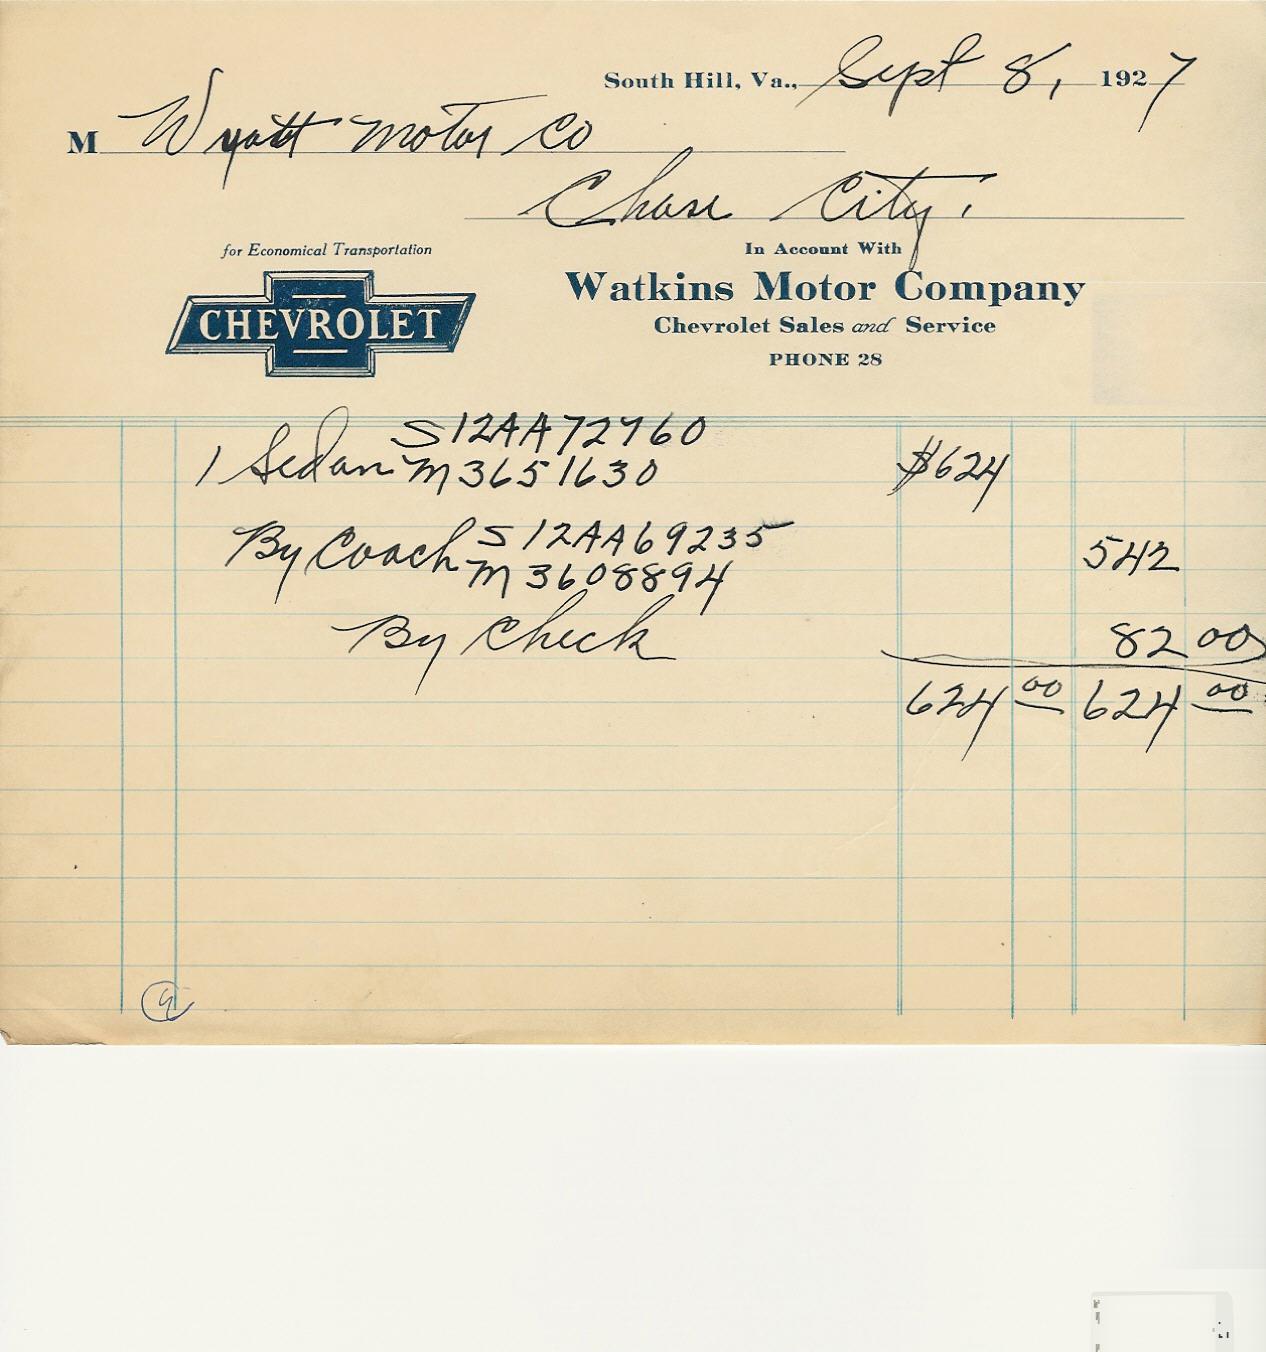 South Hill, Va., Sept 8, 1927
M Wyatt Motor Co
Chase City.
for Economical Transportation
CHEVROLET
In Account With
Watkins Motor Company
Chevrolet Sales and Service
PHONE 28
S 12AA72760
1 Sedan M 3651630 $624
By Coach S 12AA69235 542
M 3608894
By Check 82 00
624 00 624 00